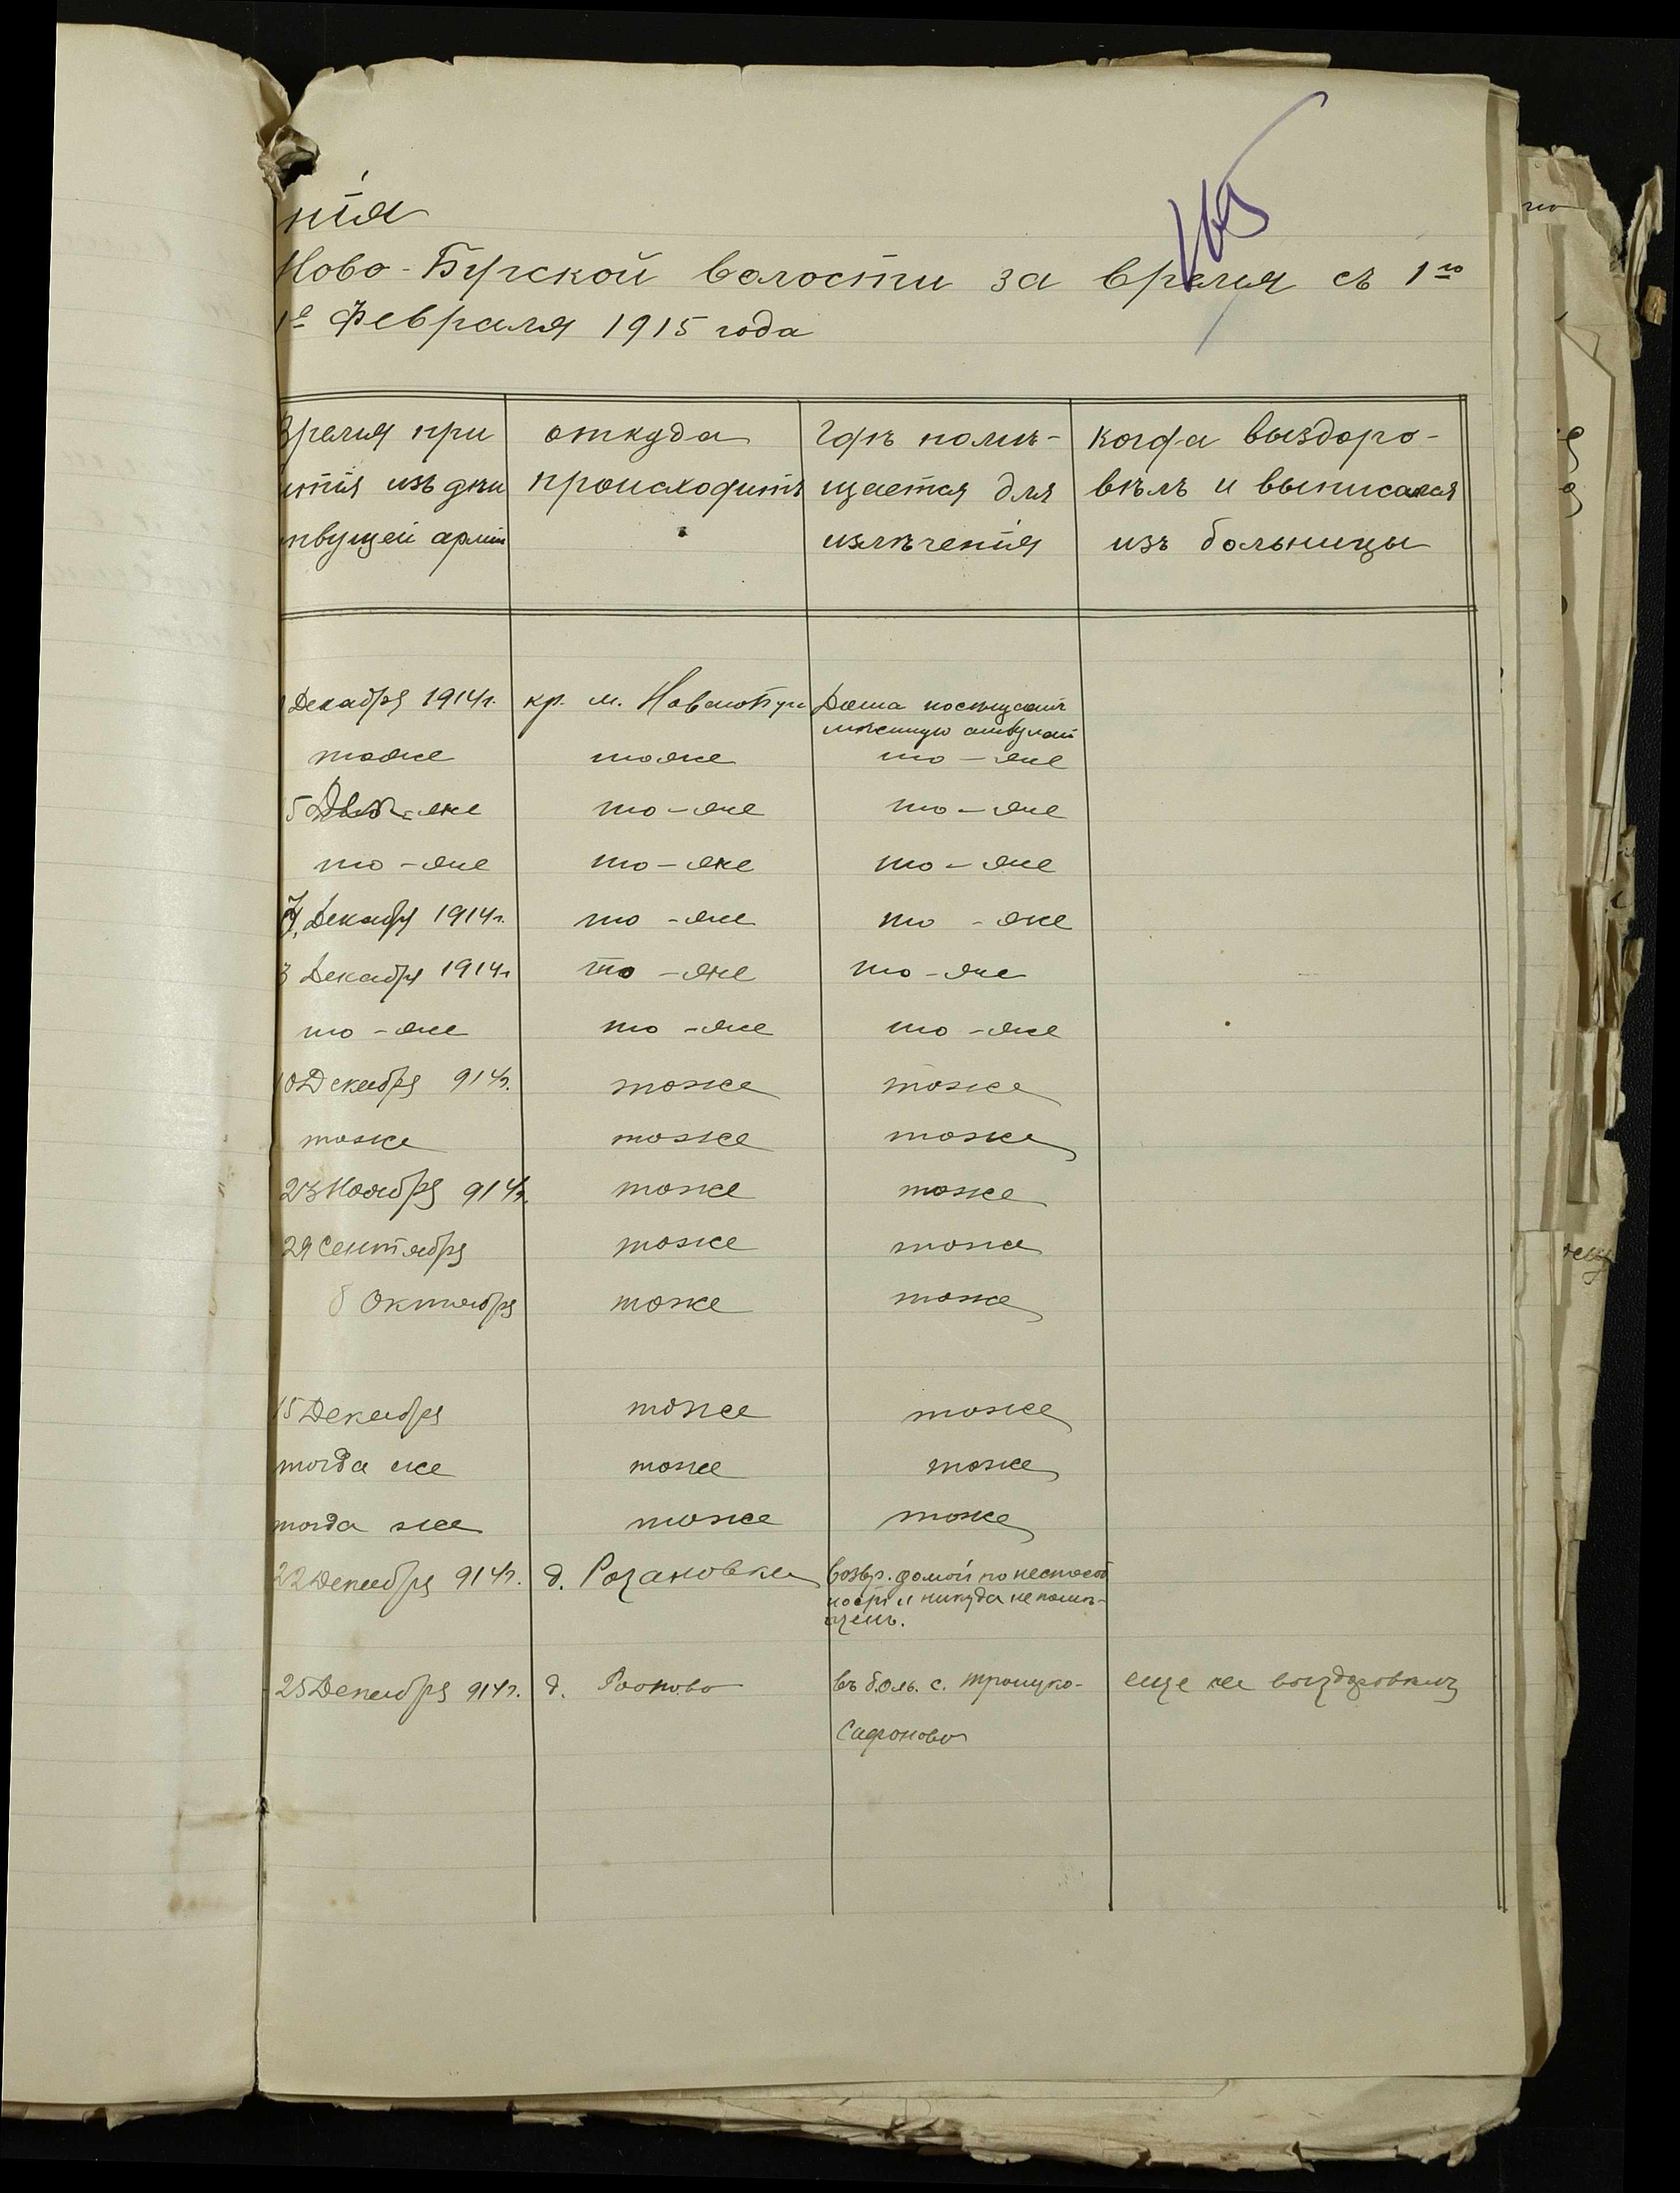 нія
Ново-Бугской волости за время съ 1го
1е Февраля 1915 года
Время при откуда Гдѣ помѣ- когда выздоро-
тія изъ дѣй происходитъ щается для вѣлъ и выписался
твущей арміи излѣченія изъ больницы
Декабря 1914г. кр. м. Дома посѣщаетъ
мѣстную
тоже тоже то-же
5 же то-же то-же
то-же то-же то-же
Декабря 1914г. то-же то-же
3 Декабря 1914г. то-же то-же
то-же то-же то-же
10 Декабря 914г. тоже тоже
тоже тоже тоже
23 Ноября 914г. тоже тоже
29 Сентября тоже тоже
8 Октября тоже тоже
15 Декабря тоже тоже
тогда же тоже тоже
тогда же тоже тоже
22 Декабря 914г. д. Розановка возвр. домой по неспособ
ности и никуда не помѣ-
щенъ.
25 Декабря 914г. д. въ боль. с. Троицко- еще не выздоровѣлъ
Сафоново